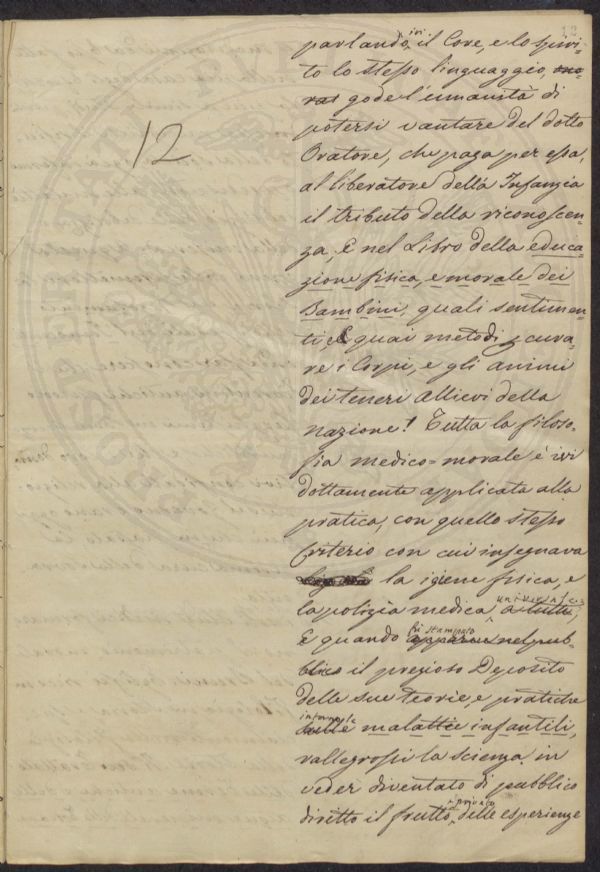 12
parlando, ivi il Core, e lo spiri-
to lo stesso linguaggio,
gode l'umanità di
potersi vantare del dotto
Oratore, che paga per essa,
al liberatore della Infanzia
il tributo della riconoscen-
za, E nel Libro della educa-
zione fisica, e morale dei
Bambini, quali sentimen-
ti e quai metodi p curva-
re i Corpi, e gli animi
dei teneri allievi della
nazione! Tutta la filoso-
fia medico=morale é ivi
dottamente applicata alla
pratica, con quello stesso
Criterio con cui insegnava
la igiene fisica, e
la polizia medica a tutti,
E quando fú stampato apparve nel pub-
blico il prezioso Deposito
delle sue teorie, e pratiche
intorno le sulle malattie infantili,
rallegrossi la scienza in
veder diventato di pubblico
diritto il frutto privato delle esperienze